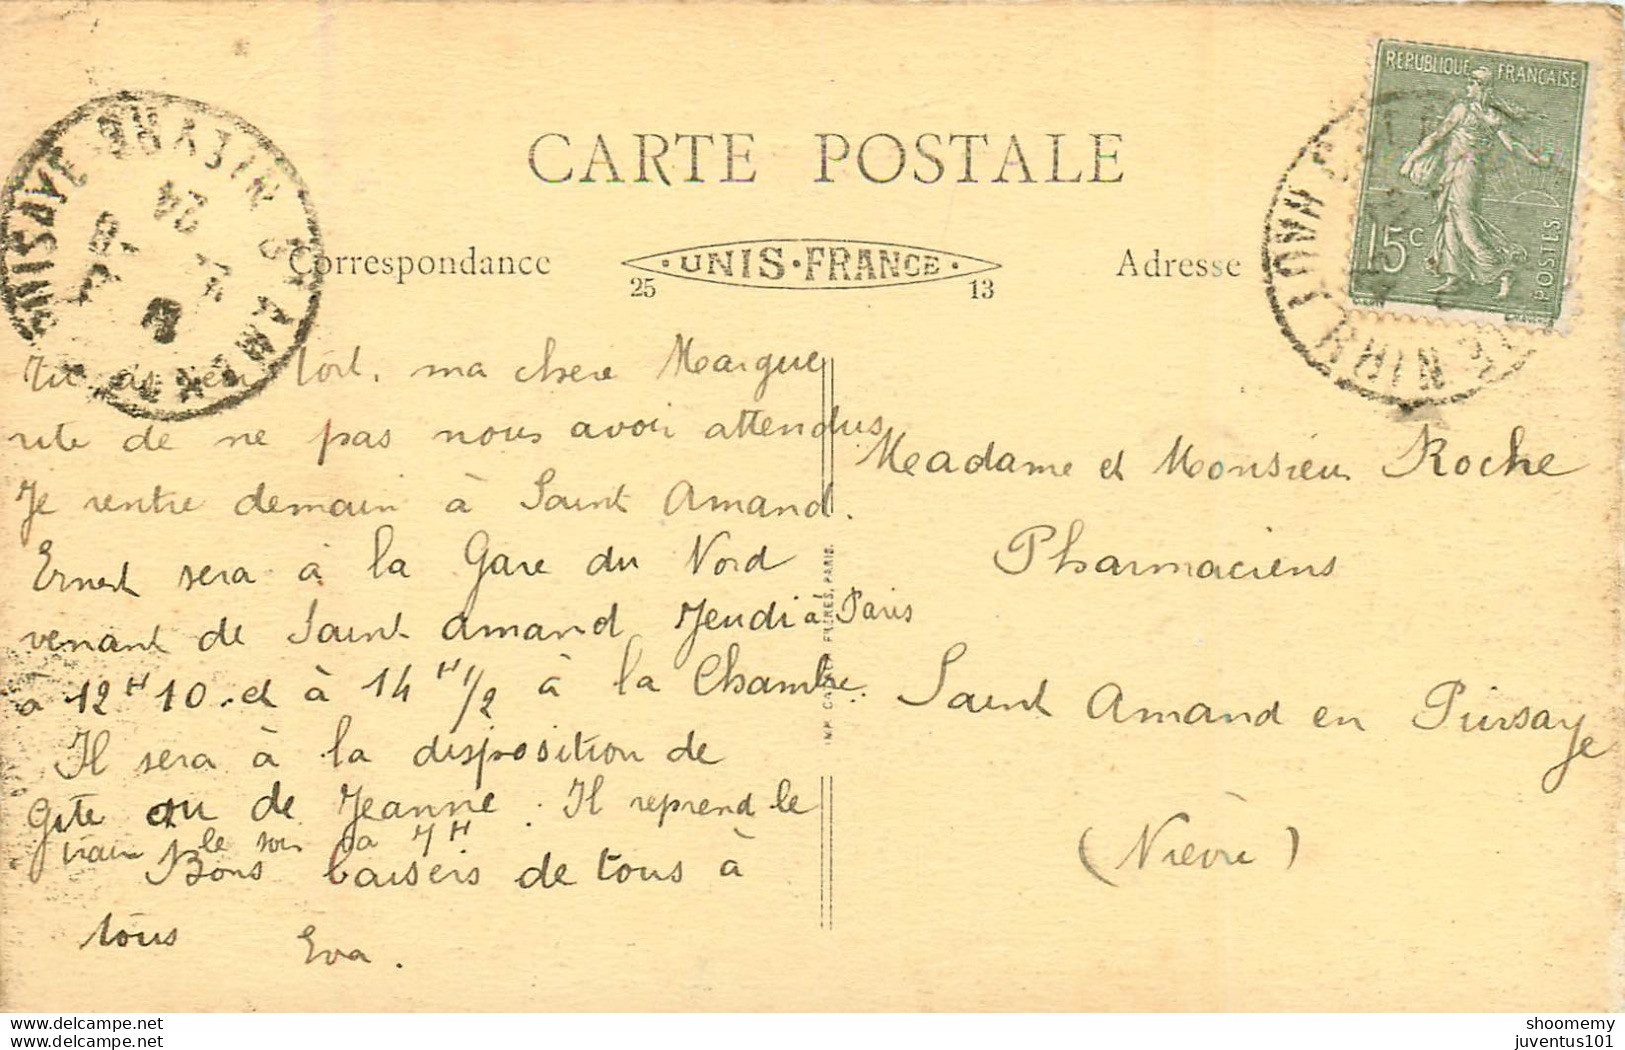 CARTE POSTALE
Correspondance
UNIS·FRANCE
25 13
Adresse
REPUBLIQUE FRANÇAISE
15c
POSTES
Tu as eu tort, ma chere Margue
rite de ne pas nous avoir attendus
Je rentre demain à Saint Amand.
Ernest sera à la Gare du Nord
venant de Saint Amand Jeudi à Paris
à 12H10 et à 14H1/2 à la Chambre.
Il sera à la disposition de
Gete ou de Jeanne. Il reprend le
train le soir à 7H
Bons baisers de tous à
tous
Eva.
Madame et Monsieur Roche
Pharmaciens
Saint Amand en Puisaye
(Nièvre)
www.delcampe.net
shoomemy
juventus101